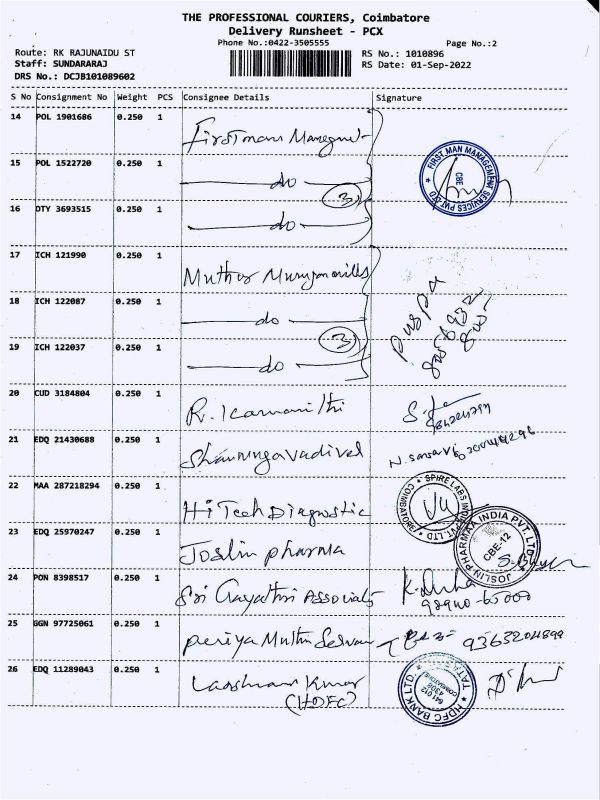 THE PROFESSIONAL COURIERS, Coimbatore
Delivery Runsheet - PCX
Phone No.:0422-3505555
Page No.:2
Route: RK RAJUNAIDU ST
RS No.: 1010896
Staff: SUNDARARAJ
RS Date: 01-Sep-2022
DRS No.: DCJB101089602
S No Consignment No Weight PCS Consignee Details Signature
14 POL 1901686 0.250 1 Firstman
15 POL 1522720 0.250 1 do
FIRST MAN MANAGEMENT SERVICES PVT LTD
CBE
3
16 DTY 3693515 0.250 1 do
17 ICH 121990 0.250 1 Muthur
18 ICH 122087 0.250 1 do
Puspa
3
19 ICH 122037 0.250 1 do
20 CUD 3184804 0.250 1 R.
21 EDQ 21430688 0.250 1 Shanmugavadivel
22 MAA 287218294 0.250 1 HiTech Diagnostic
SPIRE LABS PVT. LTD COIMBATORE
23 EDQ 25970247 0.250 1 Joslin pharma
JOSLIN PHARMAA INDIA PVT. LTD.
CBE-12
24 PON 8398517 0.250 1 Sri Gayathri
25 GGN 97725061 0.250 1 periya Muthu Selvan
26 EDQ 11289043 0.250 1 Kumar
(HDFC)
HDFC BANK LTD.
641 012